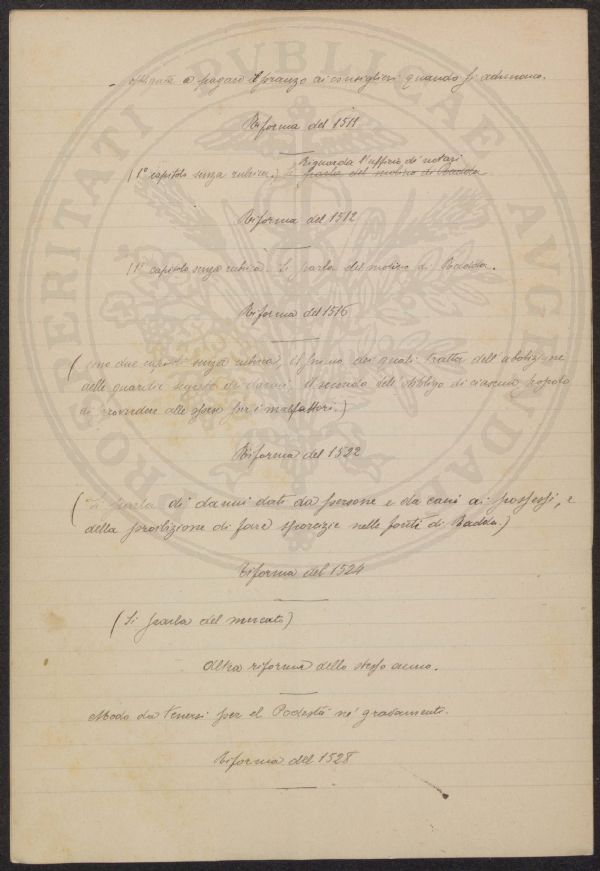 obbligato a pagare il pranzo ai consiglieri quando si adunano.
Riforma del 1511
Riguarda l'uffizio de' notari
(1° capitolo senza rubrica.) Si parla del molino di Radda
Riforma del 1512
(1° capitolo senza rubrica. Si parla del molino di Radda.
Riforma del 1516
(sono due capitoli senza rubrica, il primo dei quali tratta dell'abolizione
delle guardie segrete dei danni, il secondo dell'obbligo di ciascun popolo
di provvedere alle spese per i malfattori.)
Riforma del 1522
(Si parla di danni dati da persone e da cani ai possessi, e
della proibizione di fare sporcizie nelle fonti di Radda.)
Riforma del 1524
(Si parla del mercato)
Altra riforma dello stesso anno.
Modo da tenersi per el Podestà ne' gravamenti.
Riforma del 1528
PROSPERITATI PVBLICAE AVGENDAE